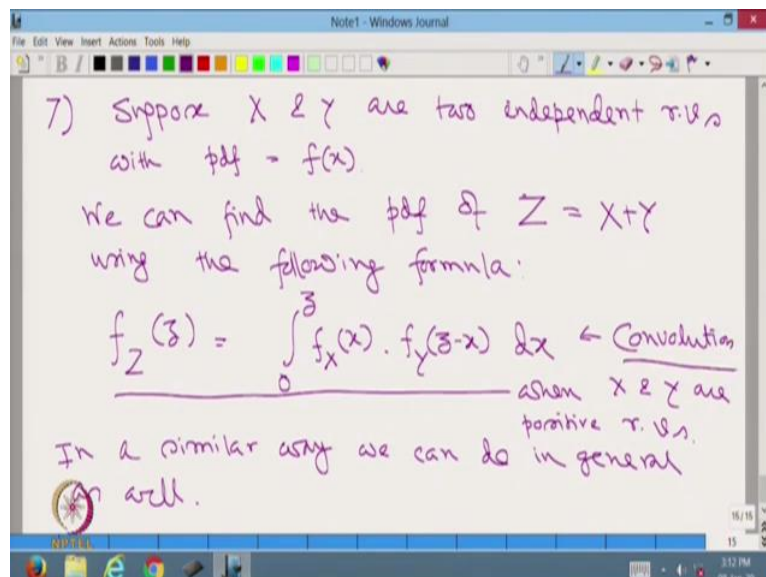 Note1 - Windows Journal
File Edit View Insert Actions Tools Help
7) Suppose X & Y are two independent r.v.s
with pdf = f(x)
We can find the pdf of Z = X+Y
using the following formula:
f_Z(z) = ∫_0^z f_X(x) . f_Y(z-x) dx ← Convolution
when X & Y are
positive r.v.s.
In a similar way we can do in general
as well.
NPTEL
15/15
15
3:12 PM